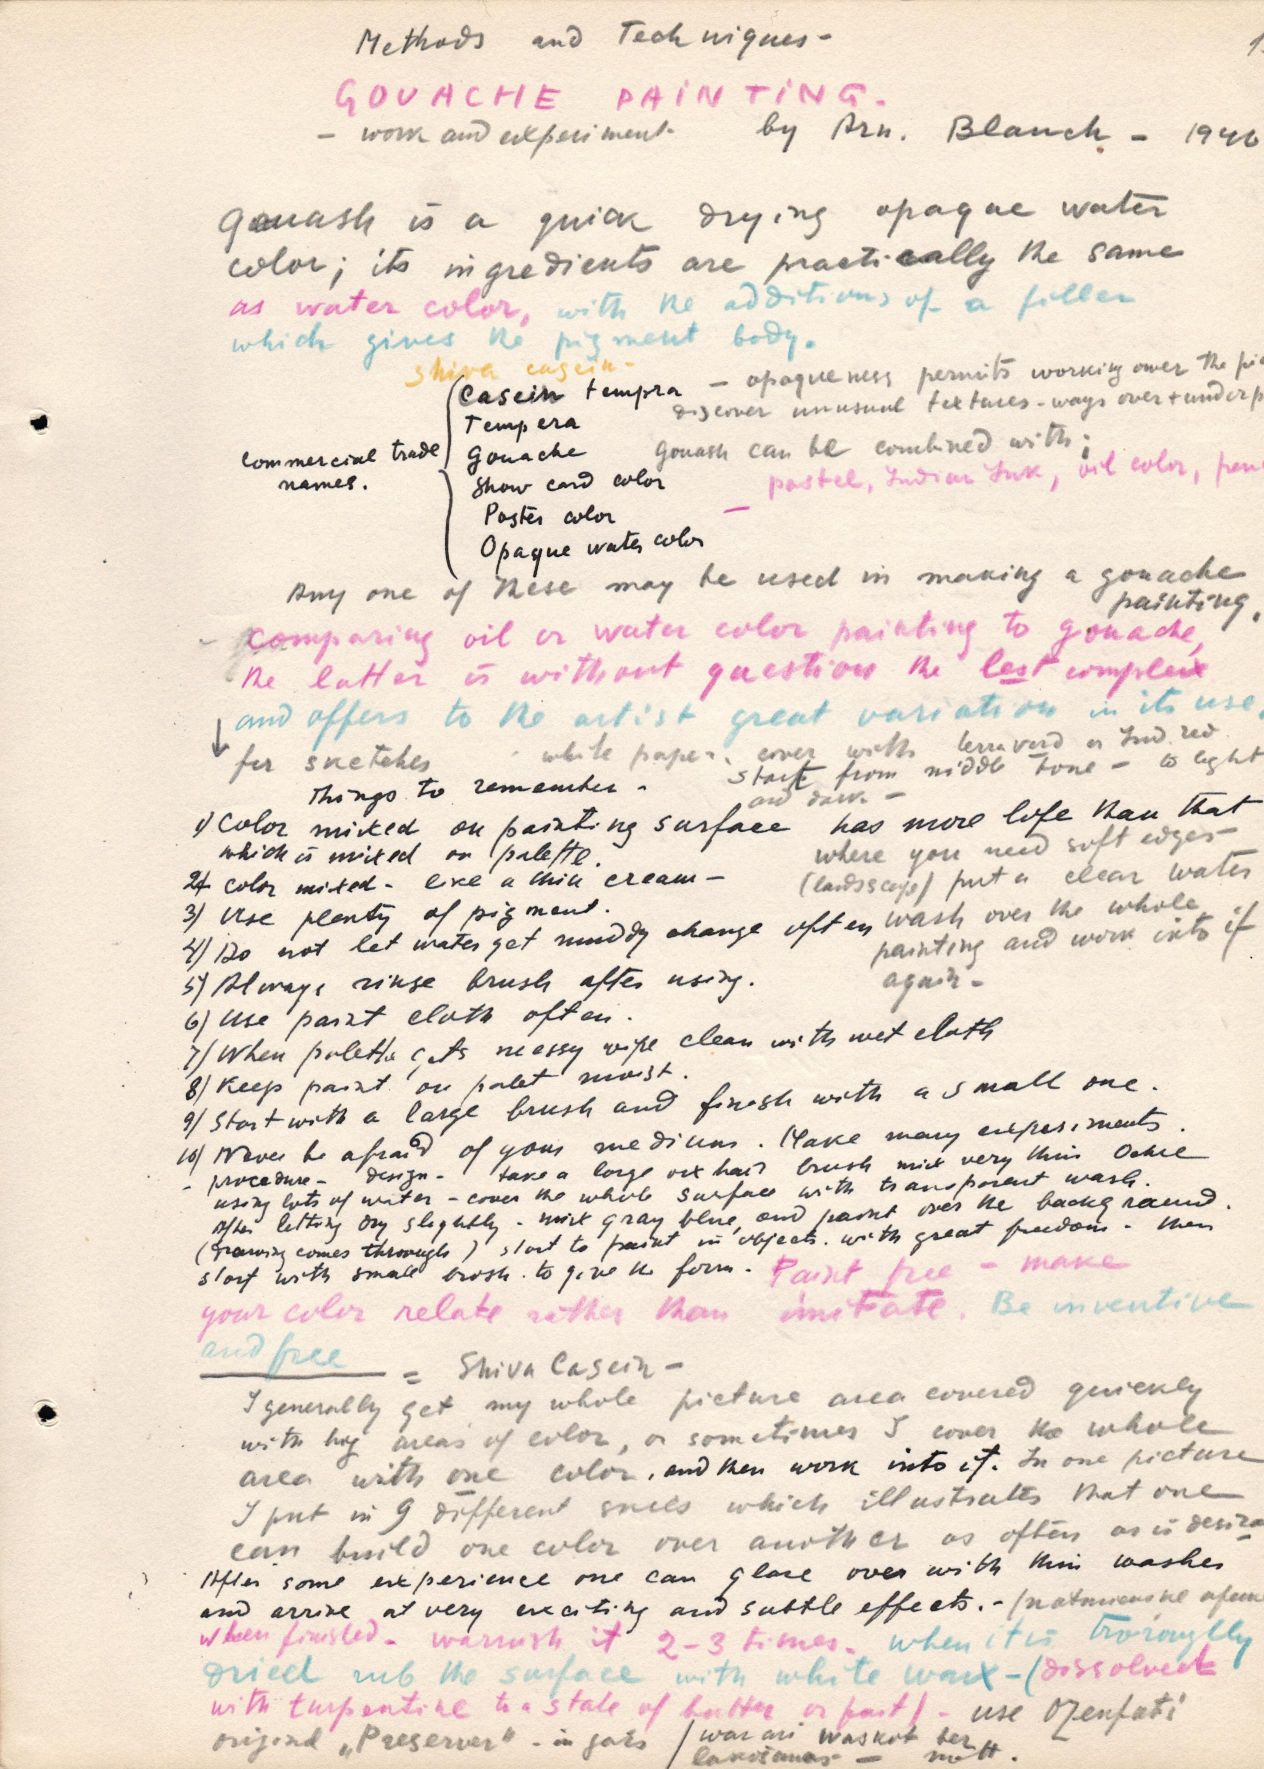 Methods and Techniques -
GOUACHE PAINTING.
- work and experiment - by Arn. Blanch - 1946
Gouash is a quick drying opaque water
color; its ingredients are practically the same
as water color, with the additions of a filler
which gives the pigment body.
Shiva casein -
commercial trade
names.
Casein tempra
Tempera
Gouache
Show card color
Poster color
Opaque water color
- opaqueness permits working over the
discover unusual textures - ways over + under
Gouash can be combined with;
- pastel, Indian Ink, oil color,
Any one of these may be used in making a gouache
painting.
- comparing oil or water color painting to gouache,
the latter is without question the lest complex
and offers to the artist great variation in its use.
for sketches
white paper. cover with or Ind. red
start from middle tone - to light
and dark -
Things to remember -
1) Color mixed on painting surface has more life than that
which is mixed on palette.
2) color mixed - like a thin cream -
3) Use plenty of pigment.
4) Do not let water get muddy change often
5) Always rinse brush after using.
6) Use paint cloth often.
7) When palette gets messy wipe clean with wet cloth
8) Keep paint on palet moist.
9) Start with a large brush and finish with a small one.
10) Never be afraid of your medium. Make many experiments.
where you need soft edges -
(landscape) put a clear water
wash over the whole
painting and work into it
again -
- procedure - design - take a large ox hair brush mix very thin Ochre
using lots of water - cover the whole surface with transparent wash.
After letting dry slightly - mix gray blue, and paint over the background.
(drawing comes through) start to paint in objects. with great freedom - then
start with small brush. to give the form. Paint free - make
your color relate rather than imitate. Be inventive
and free = Shiva Casein -
I generally get my whole picture area covered quickly
with big areas of color, or sometimes I cover the whole
area with one color, and then work into it. In one picture
I put in 9 different skies which illustrates that one
can build one color over another as often as is
After some experience one can glaze over with thin washes
and arrive at very exciting and subtle effects. -
when finished - warnish it 2-3 times. when it is troroughly
dried rub the surface with white wax - (dissolved
with turpentine to a state of butter or past) - use Ozenfati
original „Preserver" - in